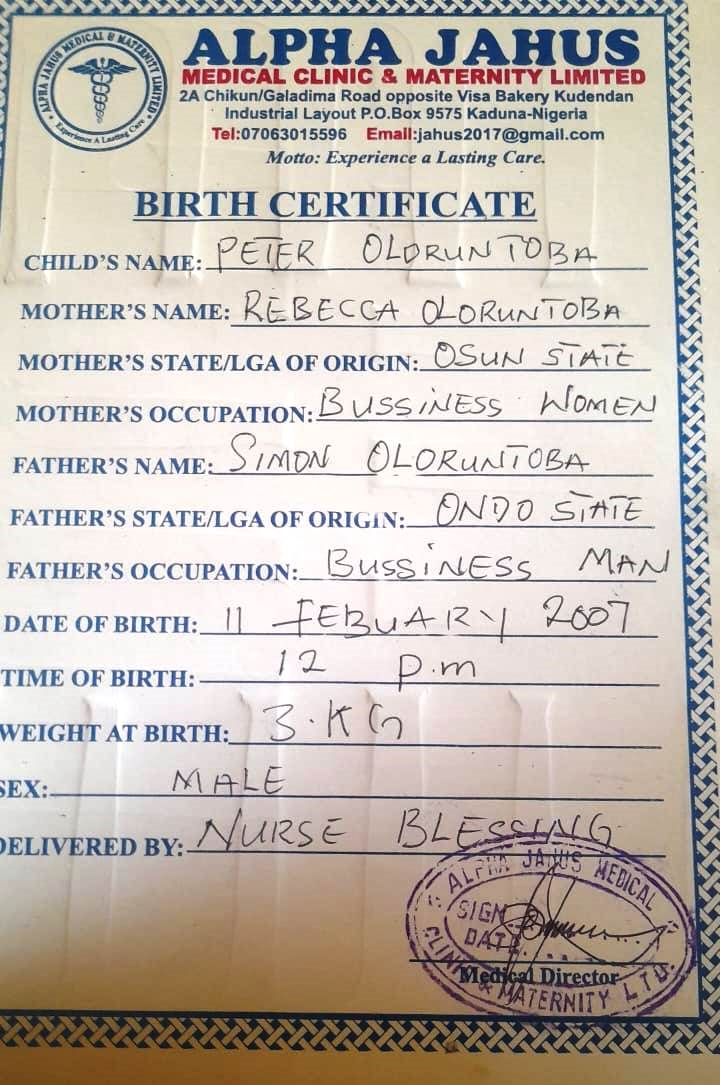 ALPHA JAHUS MEDICAL & MATERNITY LIMITED
Experience A Lasting Care
ALPHA JAHUS
MEDICAL CLINIC & MATERNITY LIMITED
2A Chikun/Galadima Road opposite Visa Bakery Kudendan
Industrial Layout P.O.Box 9575 Kaduna-Nigeria
Tel:07063015596 Email:jahus2017@gmail.com
Motto: Experience a Lasting Care.
BIRTH CERTIFICATE
CHILD'S NAME: PETER OLORUNTOBA
MOTHER'S NAME: REBECCA OLORUNTOBA
MOTHER'S STATE/LGA OF ORIGIN: OSUN STATE
MOTHER'S OCCUPATION: BUSSINESS WOMEN
FATHER'S NAME: SIMON OLORUNTOBA
FATHER'S STATE/LGA OF ORIGIN: ONDO STATE
FATHER'S OCCUPATION: BUSSINESS MAN
DATE OF BIRTH: 11 FEBUARY 2007
TIME OF BIRTH: 12 p.m
WEIGHT AT BIRTH: 3.KG
SEX: MALE
DELIVERED BY: NURSE BLESSING
ALPHA JAHUS MEDICAL
SIGN
DATE
Medical Director
CLINIC & MATERNITY LTD